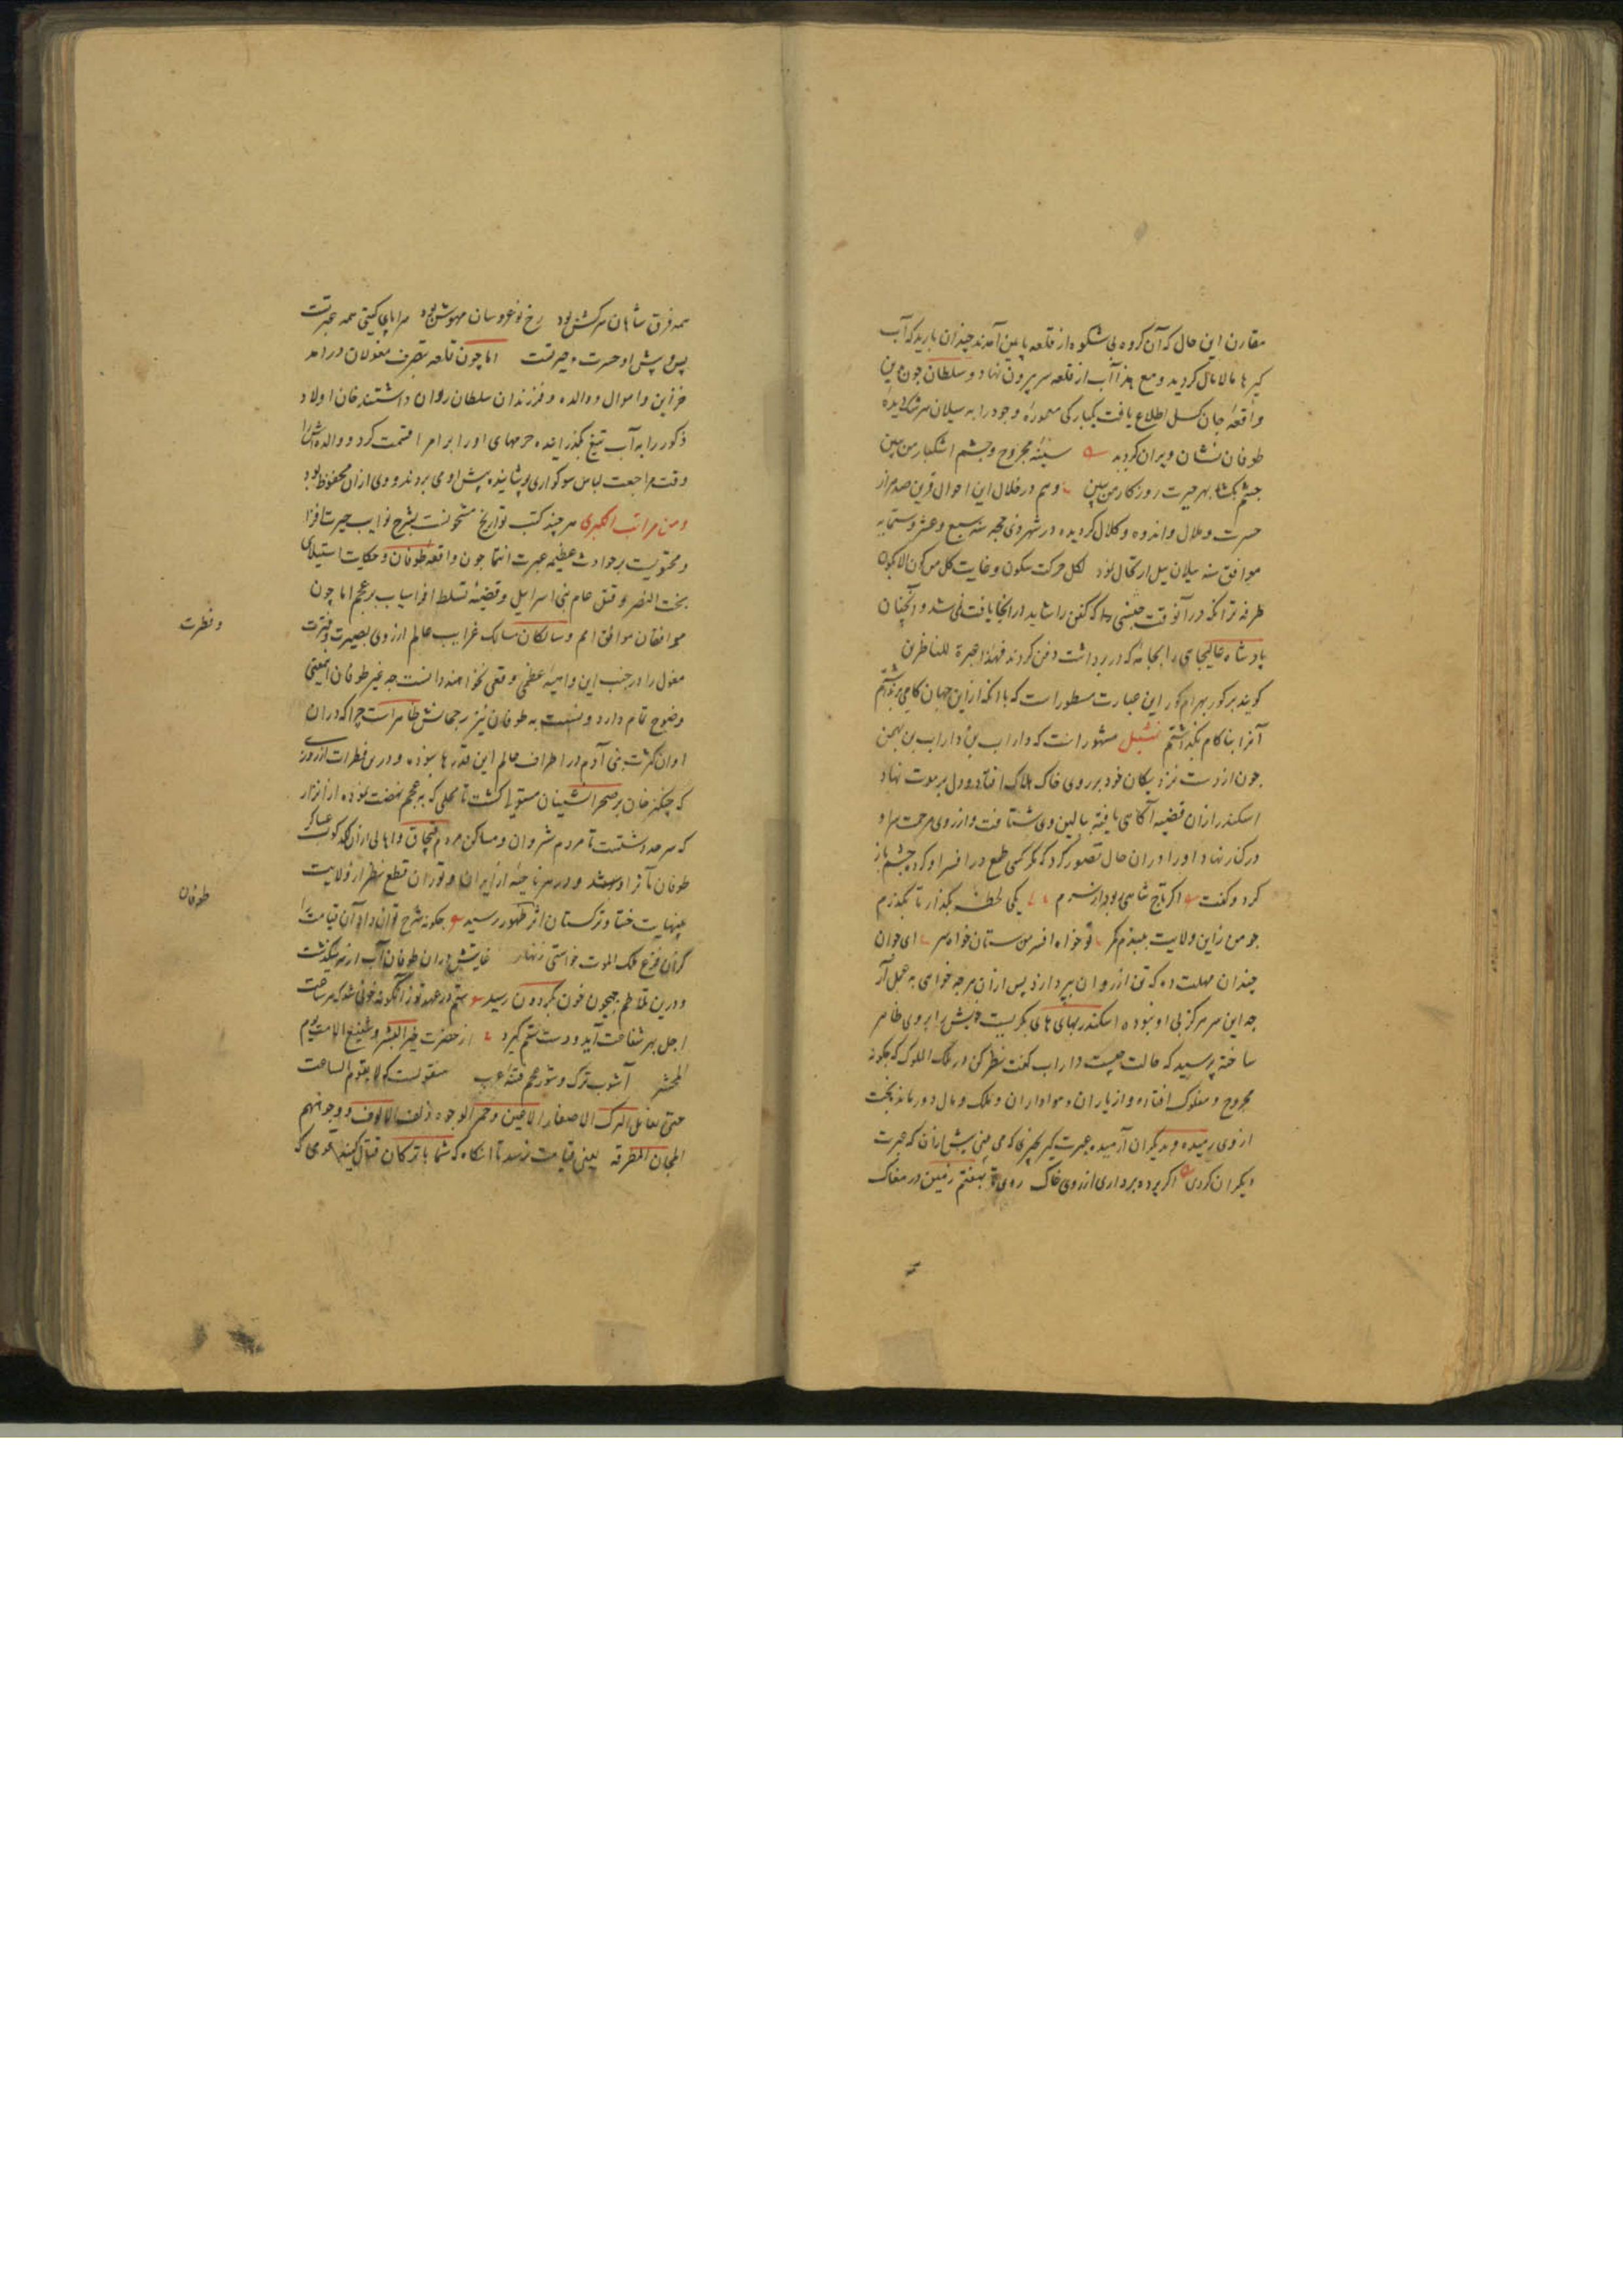 مقارن این حال که آن کروه بی شکوه از قلعه پایین آمدند چندان بارید که آب
کیرها مالامال کردید ومع هذا آب از قلعه سر بیرون نهاد و سلطان چون برین
واقعهٔ جان کسل اطلاع یافت یکبارکی معمورهٔ وجود را به سیلان سرشک دیدهٔ
طوفان نشان ویران کردید سینهٔ مجروح وچشم اشکبار من ببین
چشم بکشا بهر حیرت روزکار من ببین وهم در خلال این احوال قرین صد هزار
حسرت وملال واندوه وکلال کردیده در شهر ذی حجه سنه سبع وعشر وستمایه
موافق سنه ییلان ییل ارتحال نمود لکل حرکت سکون وغایت کل من کون الا یکون
طرفه ترانکه در آنوقت جنسی که کفن را شاید در انجا یافت نمی شد و آنچنان
پادشاه عالیجاهی را بجامه که در برداشت دفن کردند فهذا عبرة للناظرین
کویند بر کور بهرام کور این عبارت مسطور است که با انکه از این جهان کامی برنداشتم
آنرا بناکام بکذاشتم تمثیل مشهور است که داراب بن داراب بن بهمن
چون از دست نزدیکان خود بر روی خاک هلاک افتاد و دل بر موت نهاد
اسکندر ازان قضیه آکاهی یافته ببالین وی شتافت و از روی مرحمت سر او
در کنار نهاد او را در ان حال تصور کرد که مکر کسی طمع در افسر او کرده چشم باز
کرد وکفت اکر تاج شاهی بود از سرم یکی لحظه بکذار تا بکذرم
چو من زاین ولایت ببندم کمر تو خواه افسر من ستان خواه سر ای جوان
چندان مهلت ده که تن از روان بپردازد پس ازان هرچه خواهی به عمل آر
چه این سر هرکز بی او نبوده اسکندر بهای های بکریست
ساخته پرسید که حالت چیست داراب کفت نظر کن در ملک الملوک که چکونه
مجروح ومفلوک افتاده و از یاران وهواداران وملک ومال دور مانده بخت
از وی رمیده وبدیکران آرمیده عبرت کیر بچیزی که می بینی پیش ازان که عبرت
دیکران کردی اکر پرده برداری از روی خاک روی تا بهفتم زمین در مغاک
همه فرق شاهان سرکش بود رخ نوعروسان مهوش بود سراپای کیتی همه عبرتست
پس وپیش او حسرت وحیرتست اما چون قلعه بتصرف مغولان درامد
خزاین واموال ووالده وفرزندان سلطان روان داشتند خان اولاد
ذکور را به آب تیغ بکذرانیده حرمهای او را بر امرا قسمت کرد ووالده اش را
وقت مراجعت لباس سوکواری پوشانیده پیش او می بردند و وی ازان محفوظ بود
ومن مراتب الکبری هر چند کتب تواریخ مشحونست بشرح نوایب حیرت افزا
ومحتویست بر حوادث عظیمه عبرت انتما چون واقعه طوفان وحکایت استیلای
بخت النصر وقتل عام بنی اسراییل وقضیه تسلط افراسیاب بر عجم اما چون
موافقان موافق امم وسالکان مسالک غرایب عالم از روی بصیرت وفترت
مغول را در جنب این واهیهٔ عظمی وقعی نخواهند دانست چه غیر طوفان اینمعنی
وضوح تام دارد ونسبت به طوفان نیز رجحانش ظاهر است چرا که دران
اوان کثرت بنی آدم در اطراف عالم این قدرها نبوده ودرین فطرات از روزی
که چنکیز خان بر صحرانشینان مستولی کشت تا محلی که به عجم نهضت نموده از اترار
که سرحد دشتست تا مردم شروان ومساکن مردم قبچاق واهالی ازان لکدکوب عساکر
طوفان مآثر او شد ودر هر ناحیه از ایران وتوران قطع نظر از ولایت
بینهایت ختا وترکستان اثر ظهور رسید چکونه شرح توان داد آن قیامت را
کزان فزع ملک الموت خواستی زنهار غایتش دران طوفان آب از سر بکذشت
ودرین تلاطم جیحون خون بکردون رسید ستم در عهد تو زانکونه خونی شد که هر ساعت
اجل بهر شفاعت آید ودست ستم کیرد از حضرت خیر البشر وشفیع الامت یوم
المحشر آشوب ترک وشور عجم فتنهٔ عرب منقولست که لا یقوم الساعت
حتی تقاتل الترک الا صغار الاعین وحمر الوجوه ذلف الانوف ووجوههم
المجان المطرقه یعنی قیامت نرسد تا انکاه که شما با ترکان قتال کنید قومی که
وفطرت
طوفان